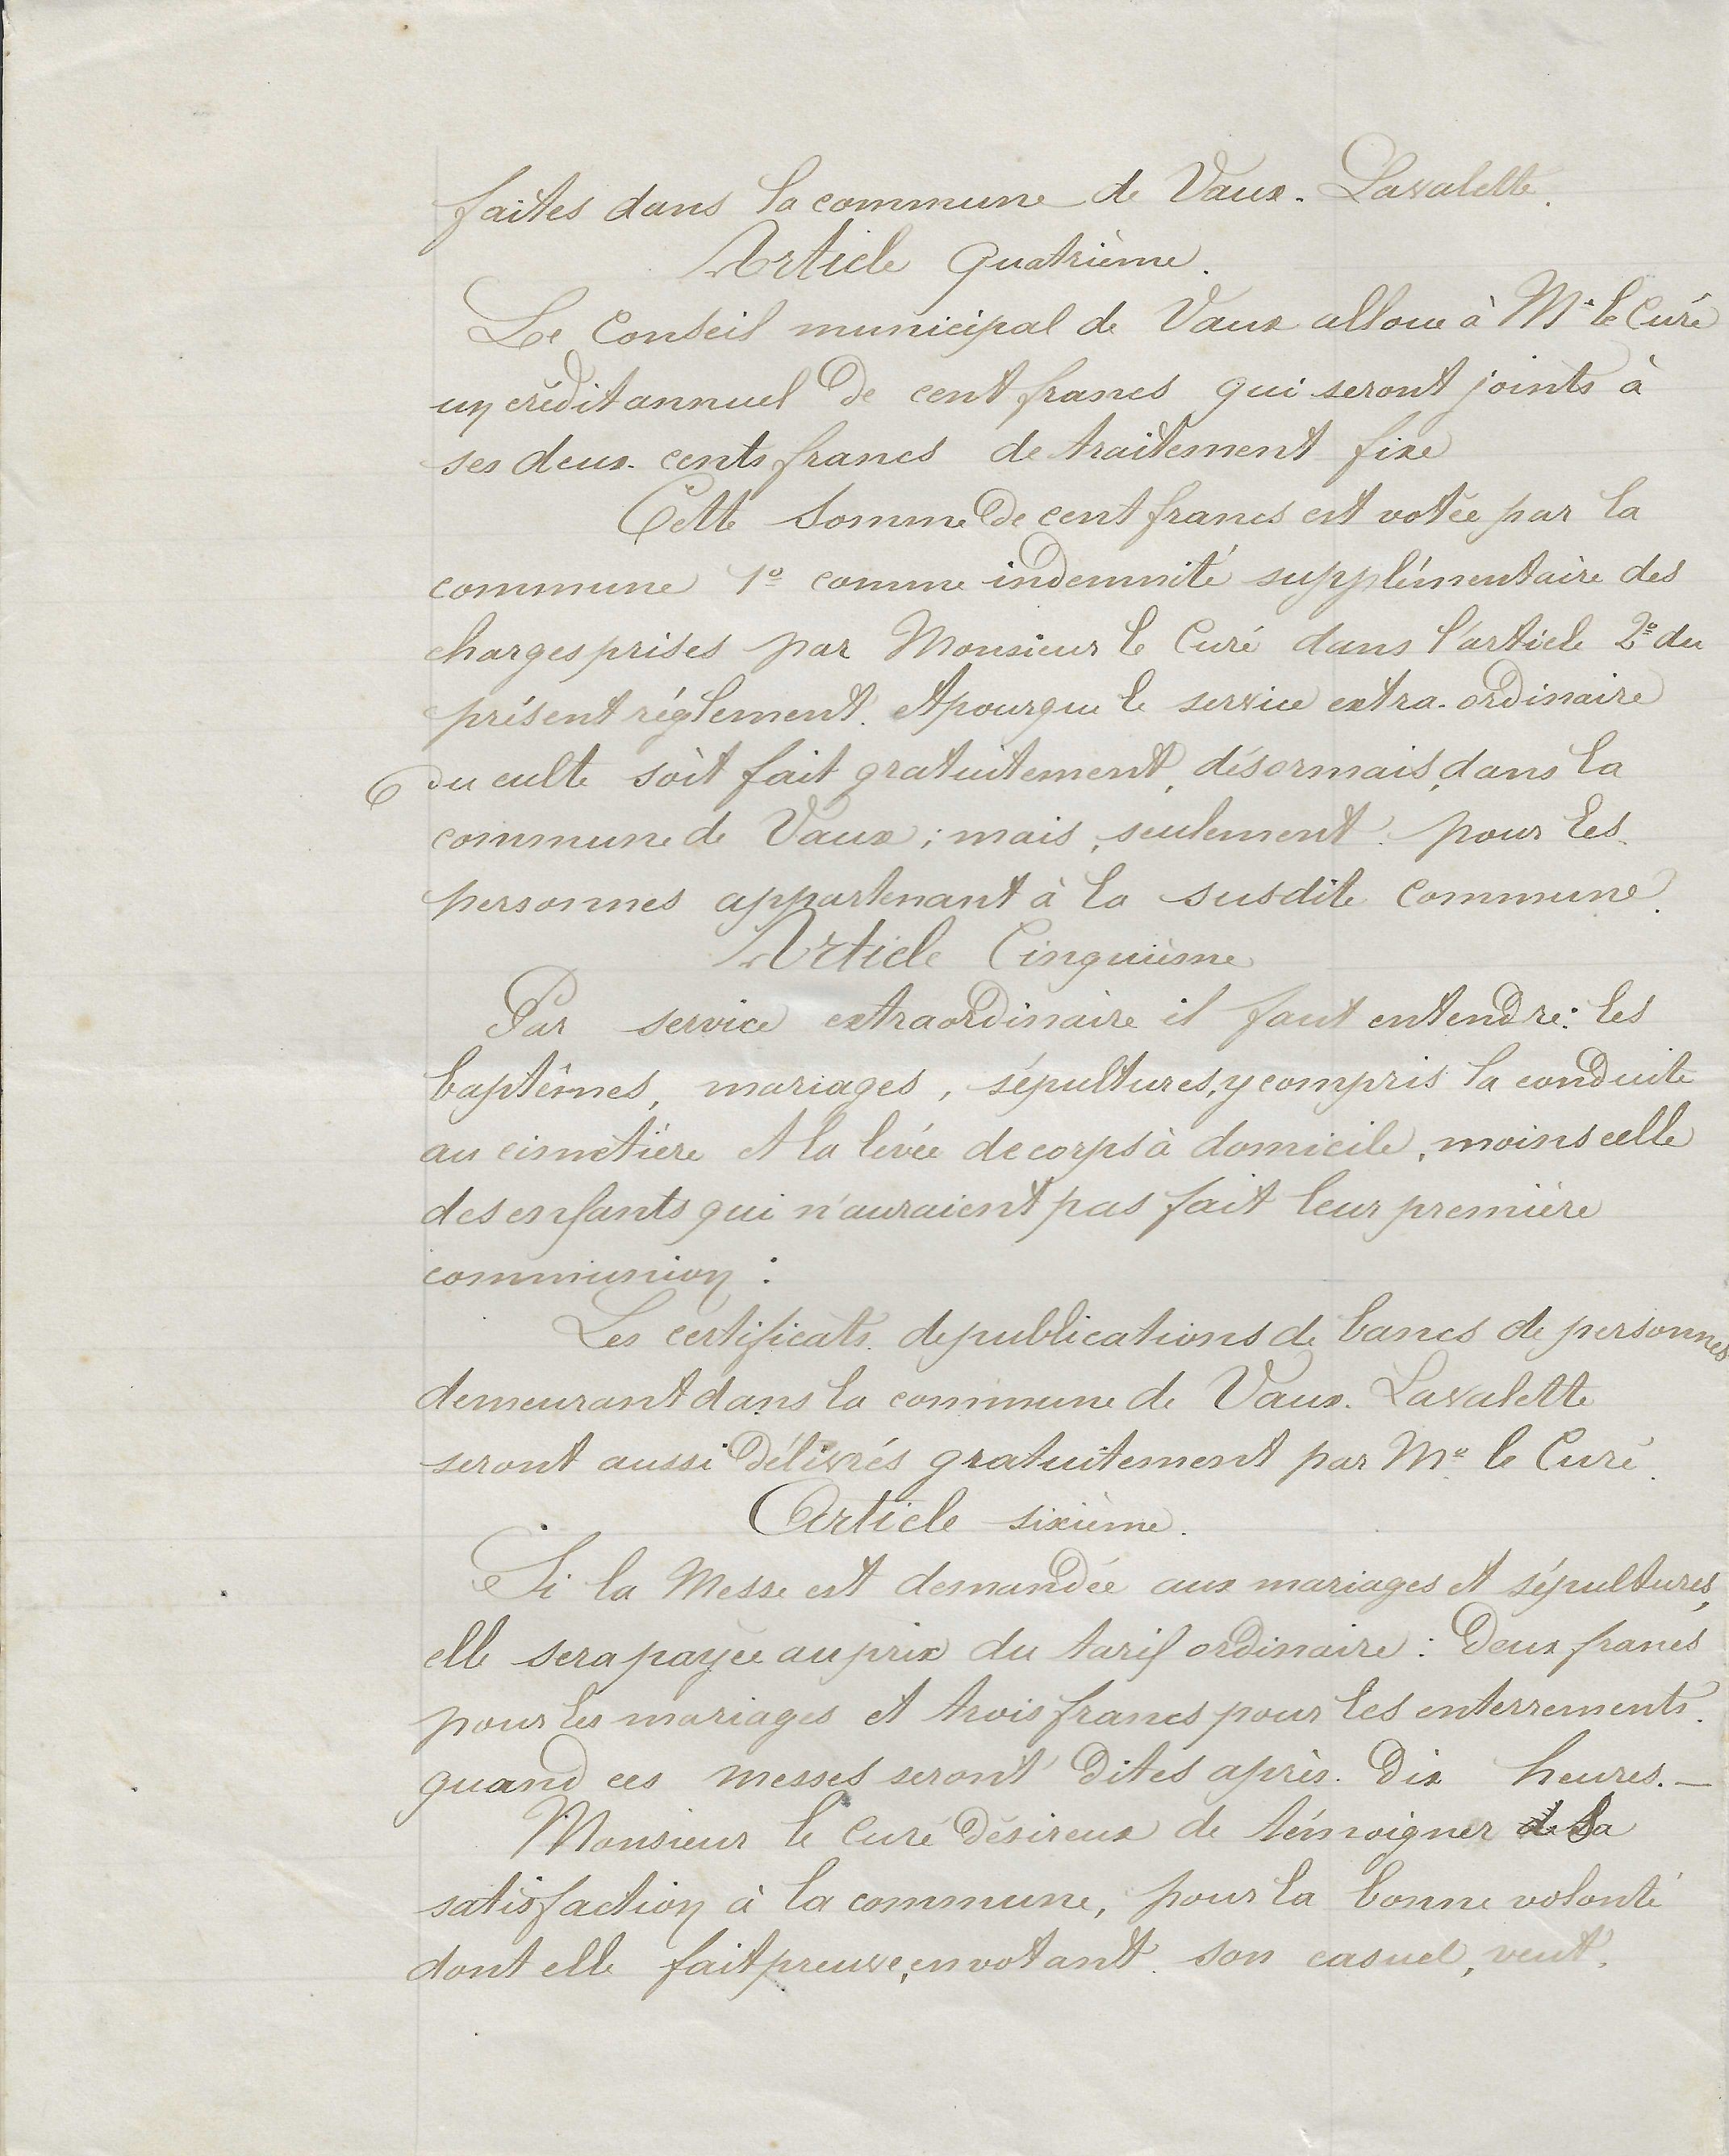 faites dans la commune de Vaux-Lavalette.
Article quatrième.
Le Conseil municipal de Vaux alloue à Mr le Curé
un crédit annuel de cent francs qui seront joints à
ses deux-cents francs de traitement fixe
Cette somme de cent francs est votée par la
commune 1º comme indemnité supplémentaire des
charges prises par Monsieur le Curé dans l'article 2º du
présent réglement. et pour que le service extra-ordinaire
du culte soit fait gratuitement, désormais, dans la
commune de Vaux; mais, seulement pour les
personnes appartenant à la susdite commune.
Article Cinquième
Par service extraordinaire il faut entendre: les
baptêmes, mariages, sépultures, y compris la conduite
au cimetière et la levée de corps à domicile, moins celle
des enfants qui n'auraient pas fait leur première
communion:
Les certificats de publications de bancs de personnes
demeurant dans la commune de Vaux-Lavalette
seront aussi délivrés gratuitement par Mr le Curé.
Article sixième.
Si la Messe est demandée aux mariages et sépultures,
elle sera payée au prix du tarif ordinaire: Deux francs
pour les mariages et trois francs pour les enterrements.
quand ces messes seront dites après dix heures.—
Monsieur le Curé désireux de témoigner sa
satisfaction à la commune, pour la bonne volonté
dont elle fait preuve, en votant son casuel, veut,